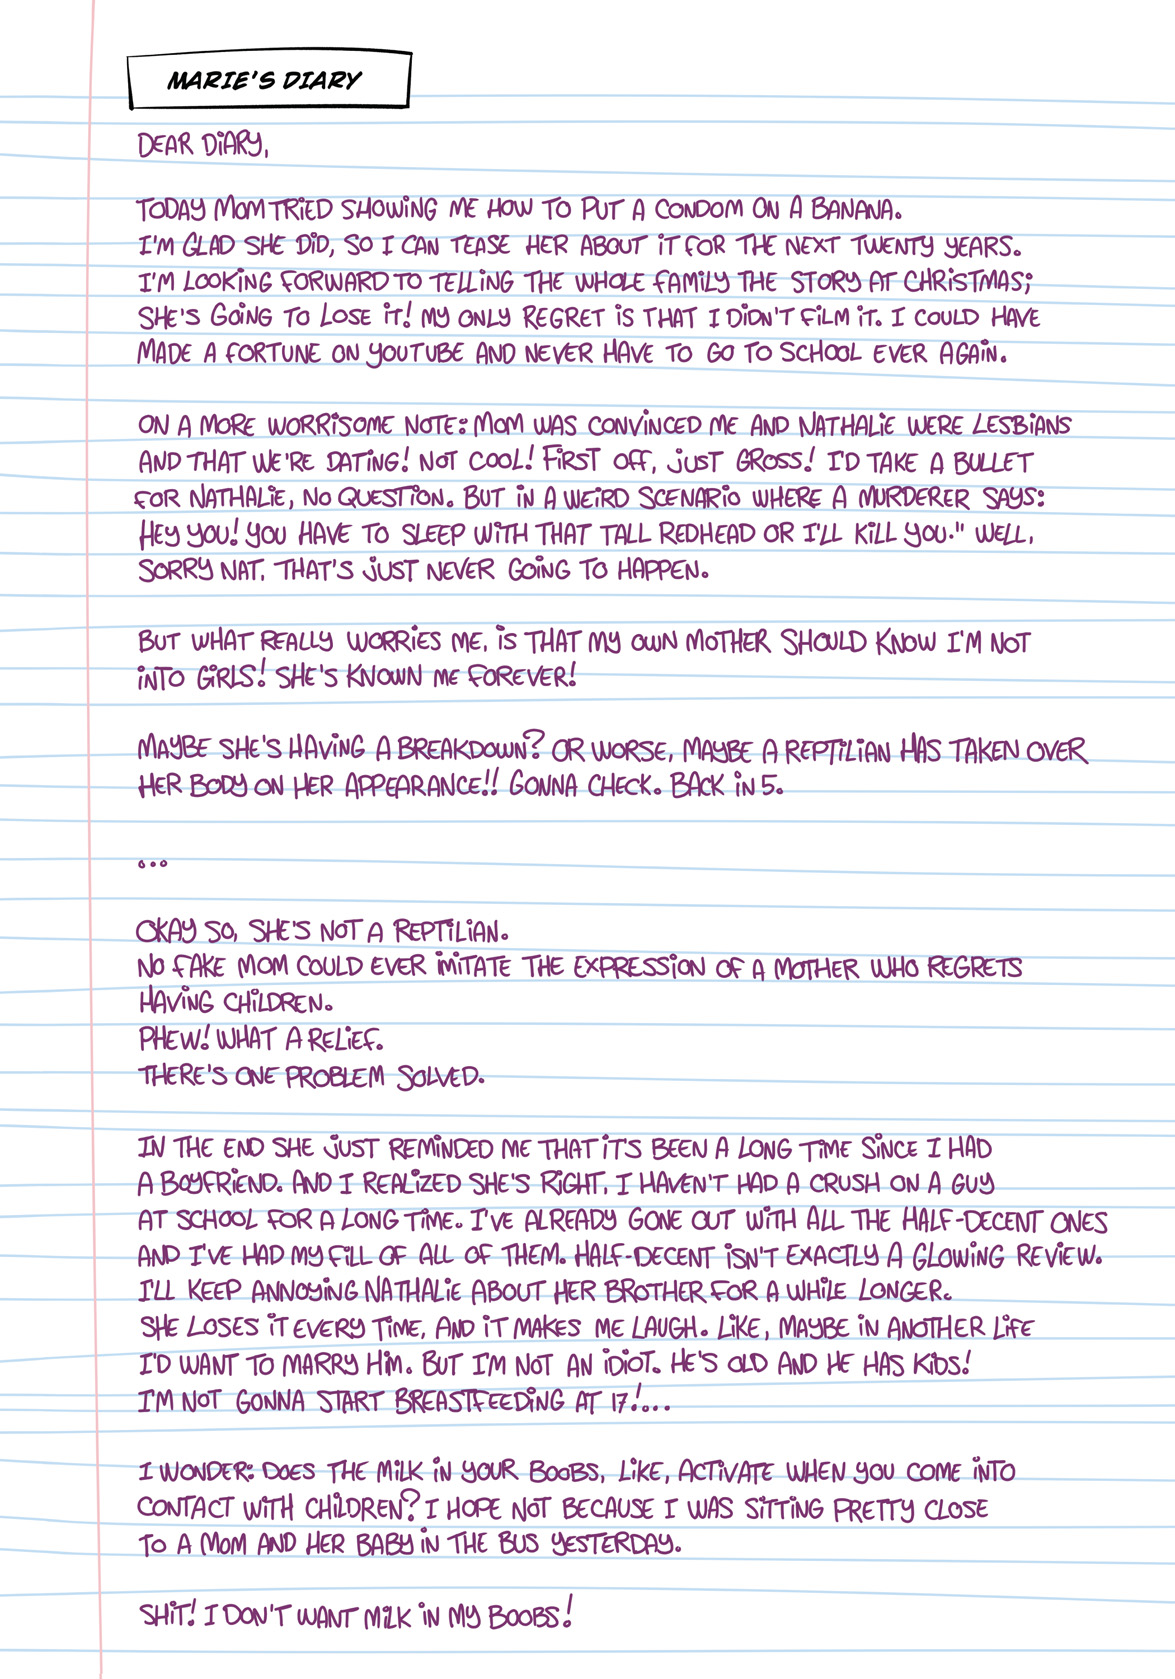 MARIE'S DIARY
DEAR DIARY,
TODAY MOM TRIED SHOWING ME HOW TO PUT A CONDOM ON A BANANA.
I'M GLAD SHE DID, SO I CAN TEASE HER ABOUT IT FOR THE NEXT TWENTY YEARS.
I'M LOOKING FORWARD TO TELLING THE WHOLE FAMILY THE STORY AT CHRISTMAS;
SHE'S GOING TO LOSE IT! MY ONLY REGRET IS THAT I DIDN'T FILM IT. I COULD HAVE
MADE A FORTUNE ON YOUTUBE AND NEVER HAVE TO GO TO SCHOOL EVER AGAIN.
ON A MORE WORRISOME NOTE: MOM WAS CONVINCED ME AND NATHALIE WERE LESBIANS
AND THAT WE'RE DATING! NOT COOL! FIRST OFF, JUST GROSS! I'D TAKE A BULLET
FOR NATHALIE, NO QUESTION. BUT IN A WEIRD SCENARIO WHERE A MURDERER SAYS:
HEY YOU! YOU HAVE TO SLEEP WITH THAT TALL REDHEAD OR I'LL KILL YOU." WELL,
SORRY NAT, THAT'S JUST NEVER GOING TO HAPPEN.
BUT WHAT REALLY WORRIES ME, IS THAT MY OWN MOTHER SHOULD KNOW I'M NOT
INTO GIRLS! SHE'S KNOWN ME FOREVER!
MAYBE SHE'S HAVING A BREAKDOWN? OR WORSE, MAYBE A REPTILIAN HAS TAKEN OVER
HER BODY ON HER APPEARANCE!! GONNA CHECK. BACK IN 5.
...
OKAY SO, SHE'S NOT A REPTILIAN.
NO FAKE MOM COULD EVER IMITATE THE EXPRESSION OF A MOTHER WHO REGRETS
HAVING CHILDREN.
PHEW! WHAT A RELIEF.
THERE'S ONE PROBLEM SOLVED.
IN THE END SHE JUST REMINDED ME THAT IT'S BEEN A LONG TIME SINCE I HAD
A BOYFRIEND. AND I REALIZED SHE'S RIGHT, I HAVEN'T HAD A CRUSH ON A GUY
AT SCHOOL FOR A LONG TIME. I'VE ALREADY GONE OUT WITH ALL THE HALF-DECENT ONES
AND I'VE HAD MY FILL OF ALL OF THEM. HALF-DECENT ISN'T EXACTLY A GLOWING REVIEW.
I'LL KEEP ANNOYING NATHALIE ABOUT HER BROTHER FOR A WHILE LONGER.
SHE LOSES IT EVERY TIME, AND IT MAKES ME LAUGH. LIKE, MAYBE IN ANOTHER LIFE
I'D WANT TO MARRY HIM. BUT I'M NOT AN IDIOT. HE'S OLD AND HE HAS KIDS!
I'M NOT GONNA START BREASTFEEDING AT 17!...
I WONDER: DOES THE MILK IN YOUR BOOBS, LIKE, ACTIVATE WHEN YOU COME INTO
CONTACT WITH CHILDREN? I HOPE NOT BECAUSE I WAS SITTING PRETTY CLOSE
TO A MOM AND HER BABY IN THE BUS YESTERDAY.
SHIT! I DON'T WANT MILK IN MY BOOBS!